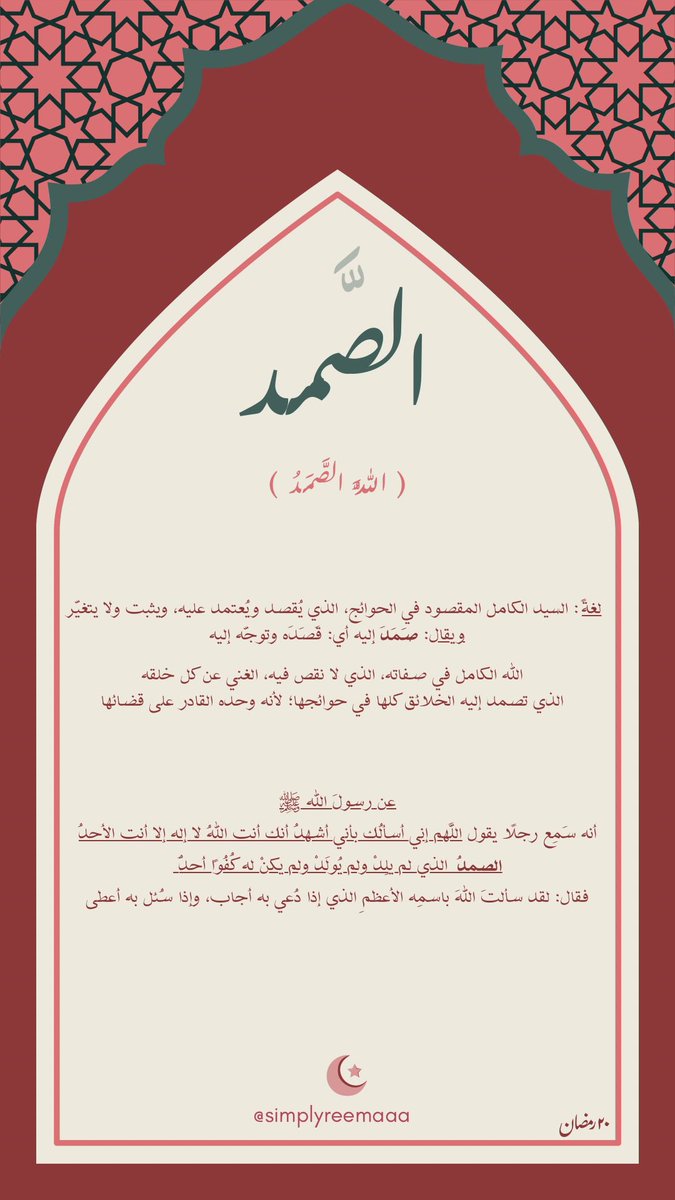 الصَّمد
( اللهُ الصَّمَدُ )
لغةً: السيد الكامل المقصود في الحوائج، الذي يُقصد ويُعتمد عليه، ويثبت ولا يتغيّر
ويقال: صَمَدَ إليه أي: قَصَدَه وتوجّه إليه
الله الكامل في صفاته، الذي لا نقص فيه، الغني عن كل خلقه
الذي تصمد إليه الخلائق كلها في حوائجها؛ لأنه وحده القادر على قضائها
عن رسولَ الله ﷺ
أنه سَمِع رجلًا يقول اللَّهم إني أسألُك بأني أشهدُ أنك أنت اللهُ لا إله إلا أنت الأحدُ
الصمدُ الذي لم يلِدْ ولم يُولَدْ ولم يكنْ له كُفُوًا أحدٌ
فقال: لقد سألتَ اللهَ باسمِه الأعظمِ الذي إذا دُعي به أجاب، وإذا سُئل به أعطى
@simplyreemaaa
٢٠ رمضان